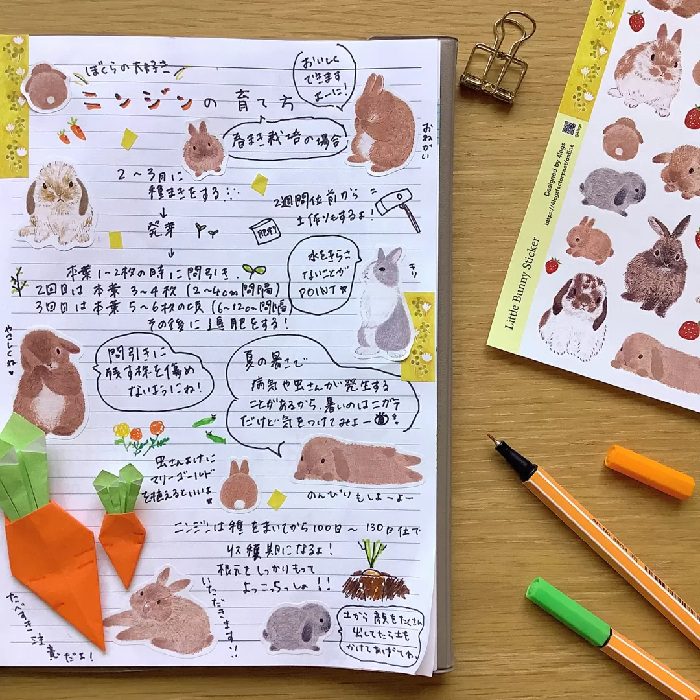 ぼくらの大好き
ニンジンの育て方
おいしく
できます
よーに!
春まき栽培の場合
おねがい
2〜3月に
種まきをする…
↓
発芽
↓
2週間位前から
土作りをするよ!
水をきらこ
ないことが
POINT
キリ
本葉1〜2枚の時に間引き
2回目は本葉3〜4枚(2〜4cm間隔)
3回目は本葉5〜6枚の頃(6〜12cm間隔)
その後に追肥をする!
やさしくね
間引きに
残す株を傷め
ないようにね!
夏の暑さで
病気や虫さんが発生する
ことがあるから、暑いのはニガテ
だけど気をつけてみよー
虫さんよけに
マリーゴールド
を植えるといいよ
のんびりもしよーよー
ニンジンは種をまいてから100日〜130日位で
収穫期になるよ!
根元をしっかりもって
よっこらっしょ!!
いただきます!!
たべすぎ注意だよ!
土から顔をたくさん
出してたら土を
かけてあげてね。
Little Bunny Sticker
Designed by 4legs